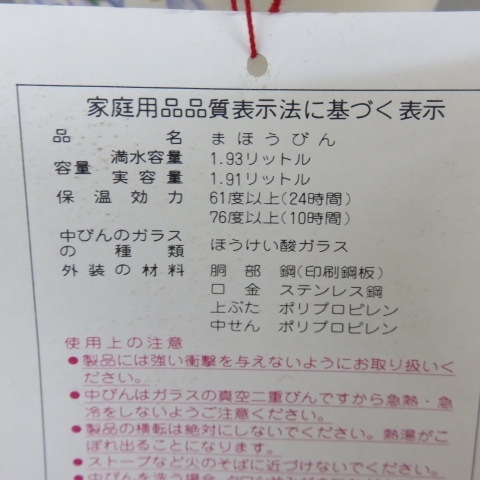 家庭用品品質表示法に基づく表示
品名 まほうびん
容量 満水容量 1.93リットル
実容量 1.91リットル
保温効力 61度以上(24時間)
76度以上(10時間)
中びんのガラスの種類 ほうけい酸ガラス
外装の材料 胴部 鋼(印刷鋼板)
口金 ステンレス鋼
上ぶた ポリプロピレン
中せん ポリプロピレン
使用上の注意
●製品には強い衝撃を与えないようにお取り扱いく
ださい。
●中びんはガラスの真空二重びんですから急熱・急
冷をしないようご注意ください。
●製品の横転は絶対にしないでください。熱湯がこ
ぼれ出ることになります。
●ストーブなど火のそばに近づけないでください。
●中びんを洗う場合